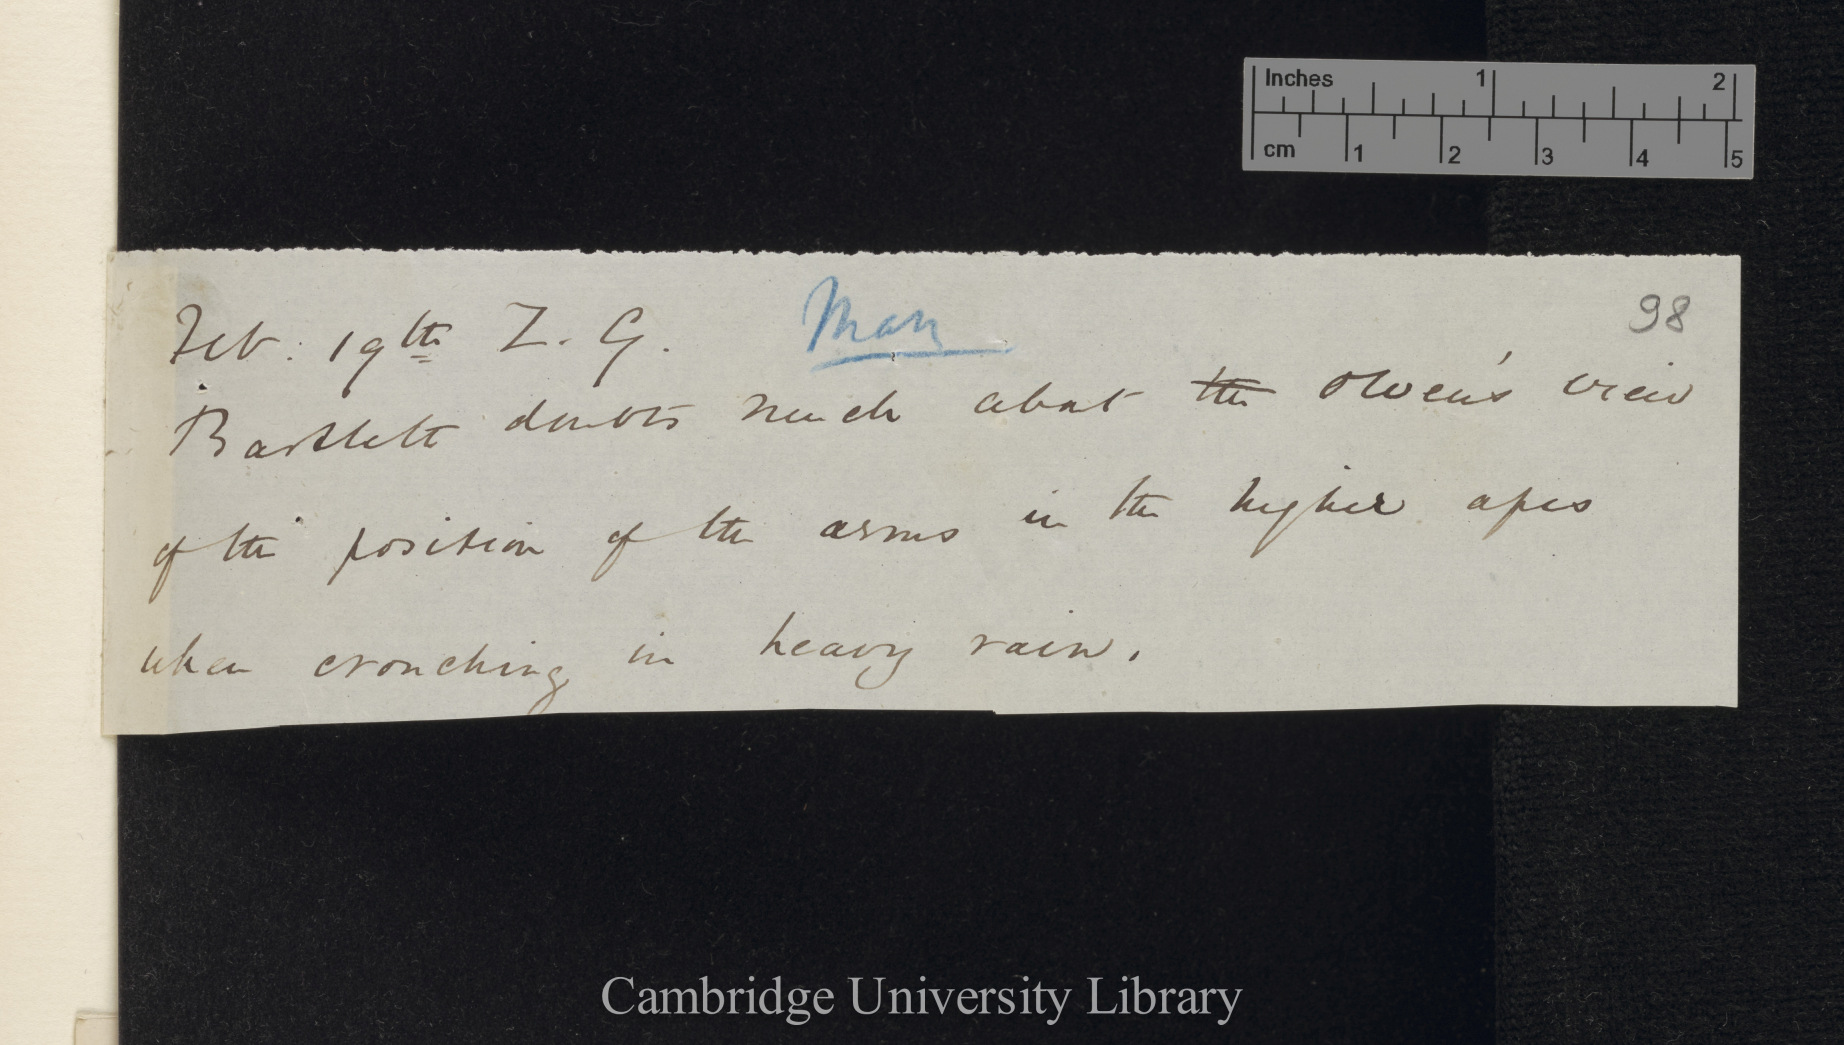 Inches 1 2
cm 1 2 3 4 5
Feb. 19th Z. G. Man 98
Bartlett doubts much about the Owen's view
of the position of the arms in the higher apes
when crouching in heavy rain.
Cambridge University Library